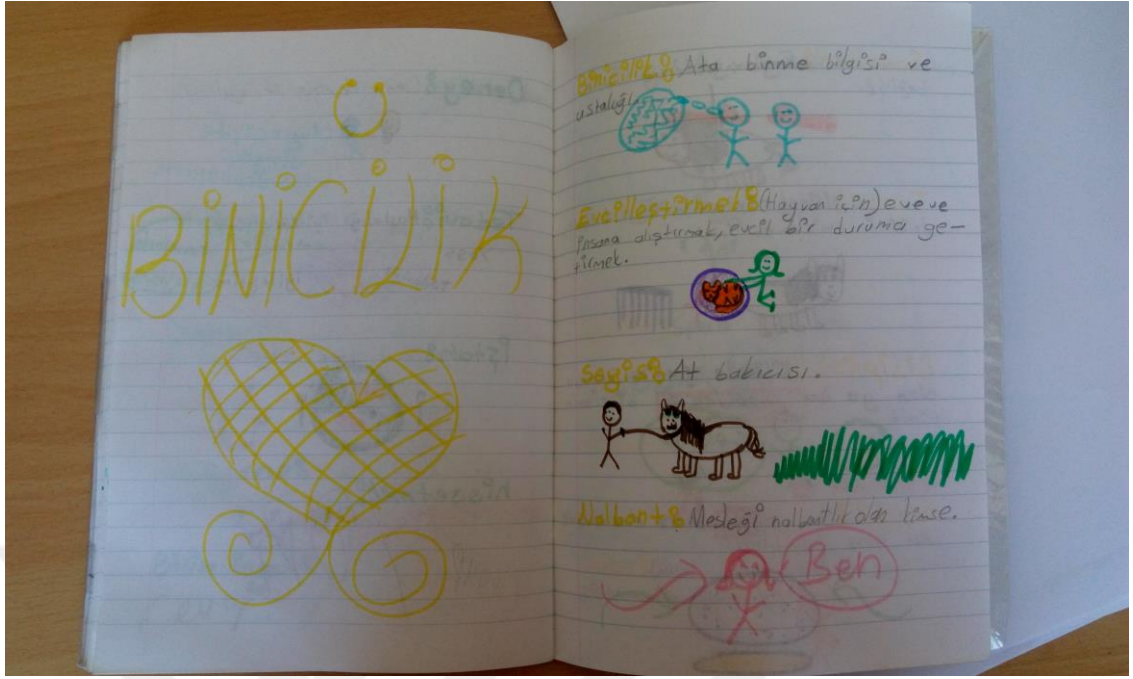 BİNİCİLİK
Binicilik: Ata binme bilgisi ve
ustalığı.
Evcilleştirmek: (Hayvan için) eve ve
insana alıştırmak, evcil bir duruma ge-
tirmek.
Seyis: At bakıcısı.
Nalbant: Mesleği nalbantlık olan kimse.
Ben